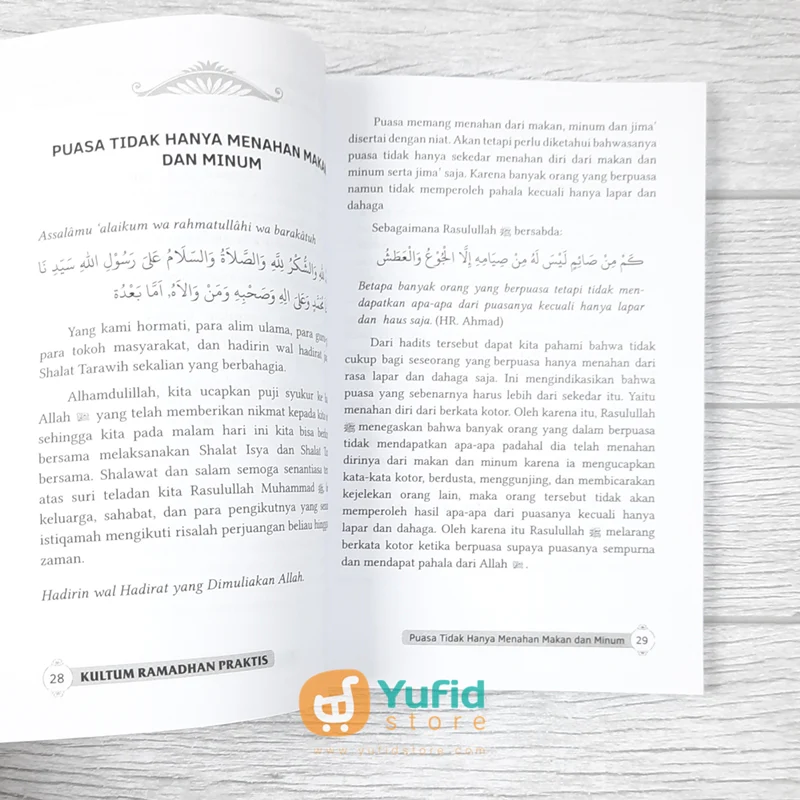 PUASA TIDAK HANYA MENAHAN MAKAN
DAN MINUM
Assalâmu 'alaikum wa rahmatullâhi wa barakâtuh
وَالشُّكْرُ لِلَّهِ وَالصَّلَاةُ وَالسَّلَامُ عَلَى رَسُوْلِ اللهِ سَيِّدِ نَا
وَعَلَى اٰلِهِ وَصَحْبِهِ وَمَنْ وَالَاهُ, اَمَّا بَعْدُهُ
Yang kami hormati, para alim ulama, para
para tokoh masyarakat, dan hadirin wal hadirat
Shalat Tarawih sekalian yang berbahagia.
Alhamdulillah, kita ucapkan puji syukur ke
Allah ﷻ yang telah memberikan nikmat kepada kita
sehingga kita pada malam hari ini kita bisa
bersama melaksanakan Shalat Isya dan Shalat
bersama. Shalawat dan salam semoga senantiasa
atas suri teladan kita Rasulullah Muhammad ﷺ,
keluarga, sahabat, dan para pengikutnya yang
istiqamah mengikuti risalah perjuangan beliau hingga
zaman.
Hadirin wal Hadirat yang Dimuliakan Allah.
28 KULTUM RAMADHAN PRAKTIS
Puasa memang menahan dari makan, minum dan jima'
disertai dengan niat. Akan tetapi perlu diketahui bahwasanya
puasa tidak hanya sekedar menahan diri dari makan dan
minum serta jima' saja. Karena banyak orang yang berpuasa
namun tidak memperoleh pahala kecuali hanya lapar dan
dahaga
Sebagaimana Rasulullah ﷺ bersabda:
كَمْ مِنْ صَائِمٍ لَيْسَ لَهُ مِنْ صِيَامِهِ إِلَّا الْجُوْعُ وَالْعَطَشُ
Betapa banyak orang yang berpuasa tetapi tidak men-
dapatkan apa-apa dari puasanya kecuali hanya lapar
dan haus saja. (HR. Ahmad)
Dari hadits tersebut dapat kita pahami bahwa tidak
cukup bagi seseorang yang berpuasa hanya menahan dari
rasa lapar dan dahaga saja. Ini mengindikasikan bahwa
puasa yang sebenarnya harus lebih dari sekedar itu. Yaitu
menahan diri dari berkata kotor. Oleh karena itu, Rasulullah
ﷺ menegaskan bahwa banyak orang yang dalam berpuasa
tidak mendapatkan apa-apa padahal dia telah menahan
dirinya dari makan dan minum karena ia mengucapkan
kata-kata kotor, berdusta, menggunjing, dan membicarakan
kejelekan orang lain, maka orang tersebut tidak akan
memperoleh hasil apa-apa dari puasanya kecuali hanya
lapar dan dahaga. Oleh karena itu Rasulullah ﷺ melarang
berkata kotor ketika berpuasa supaya puasanya sempurna
dan mendapat pahala dari Allah ﷻ.
Puasa Tidak Hanya Menahan Makan dan Minum 29
Yufid
store
www.yufidstore.com